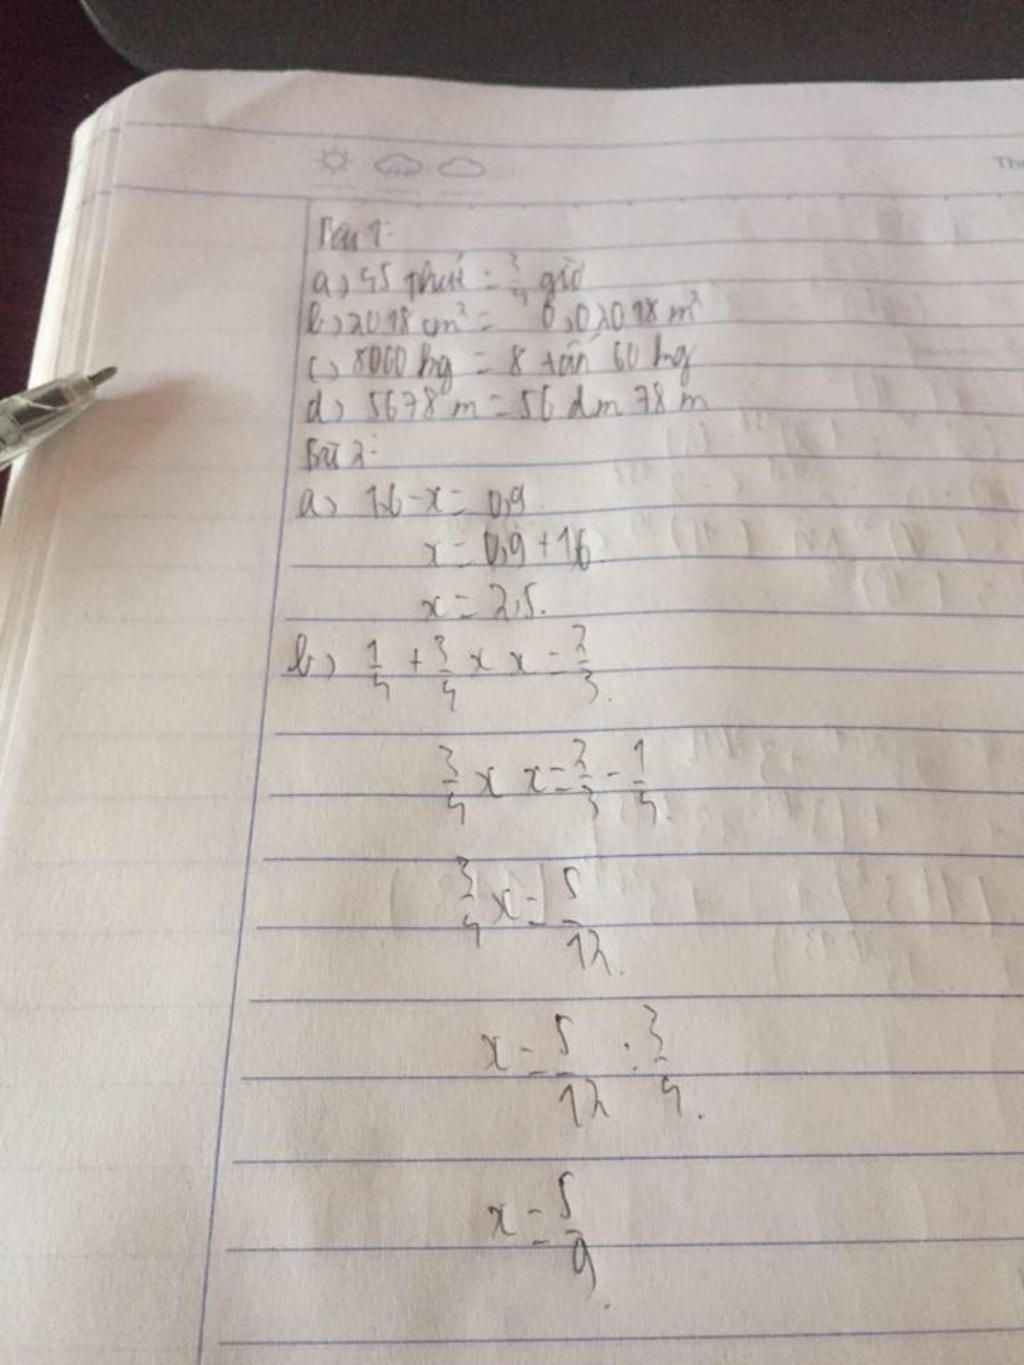 Th
Bài 1:
a) 45 phút = 3/4 giờ
b) 2018 cm² = 0,02018 m²
c) 8060 kg = 8 tấn 60 kg
d) 5678 m = 56 dm 78 m
Bài 2:
a) 1,6 - x = 0,9
x = 0,9 + 1,6
x = 2,5.
b) 1/4 + 3/4 x x = 2/3.
3/4 x x = 2/3 - 1/4.
3/4 x = 5/12.
x = 5/12 : 3/4.
x = 5/9.